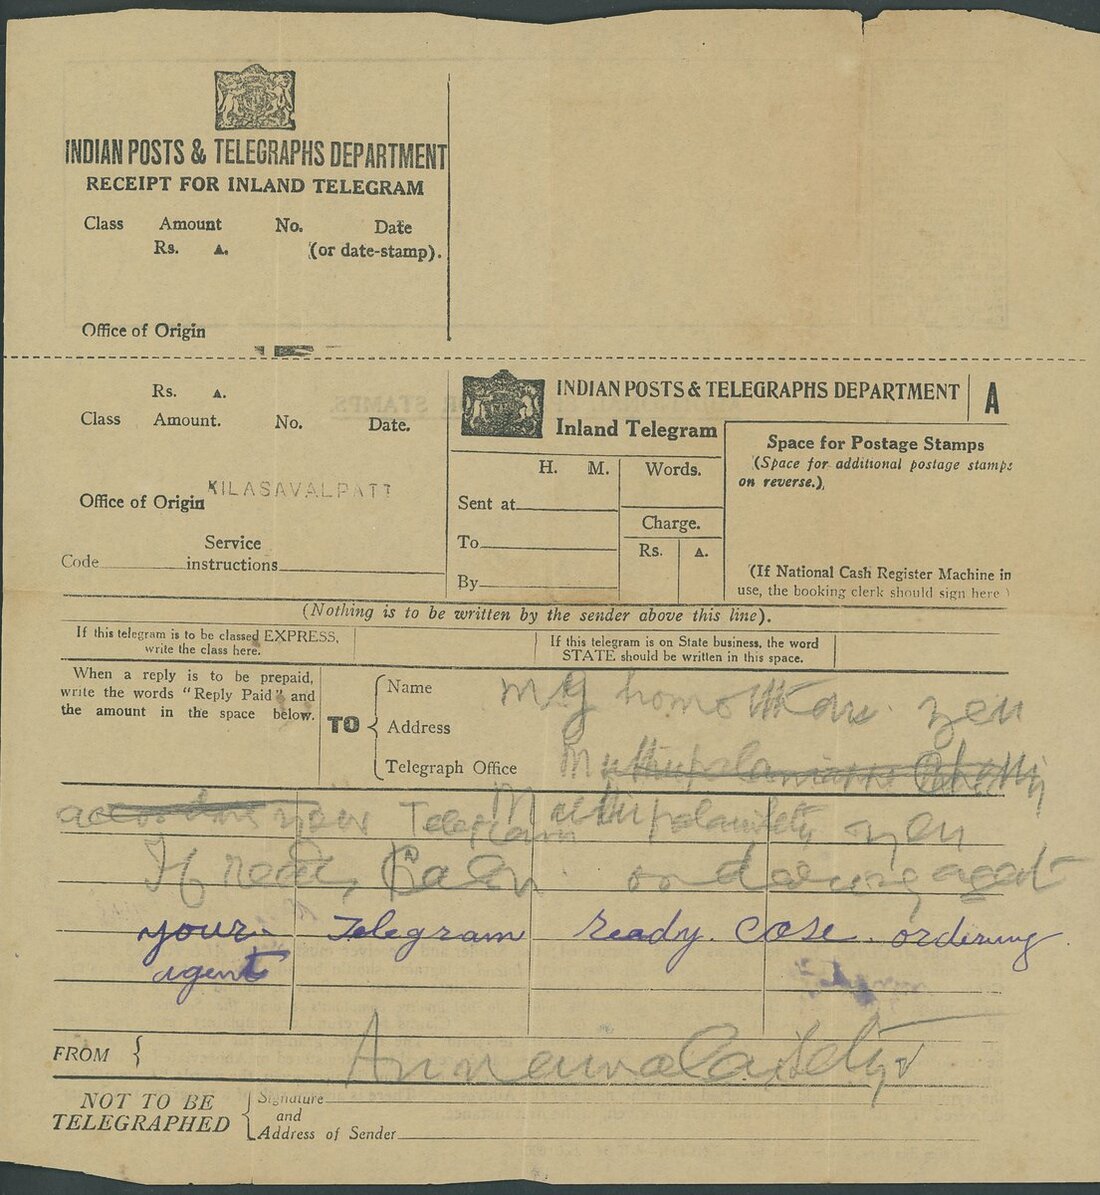 INDIAN POSTS & TELEGRAPHS DEPARTMENT
RECEIPT FOR INLAND TELEGRAM
Class Amount No. Date
Rs. A. (or date-stamp).
Office of Origin
Rs. A.
Class Amount. No. Date.
Office of Origin KILASAVALPATT
Service
Code instructions
INDIAN POSTS & TELEGRAPHS DEPARTMENT A
Inland Telegram
H. M. Words.
Sent at
Charge.
To Rs. A.
By
Space for Postage Stamps
(Space for additional postage stamps
on reverse.)
(If National Cash Register Machine in
use, the booking clerk should sign here)
(Nothing is to be written by the sender above this line).
If this telegram is to be classed EXPRESS,
write the class here.
If this telegram is on State business, the word
STATE should be written in this space.
When a reply is to be prepaid,
write the words "Reply Paid" and
the amount in the space below.
TO
Name
Address
Telegraph Office
your Telegram
If ordering agent
your Telegram ready. case. ordering
agent
FROM
NOT TO BE
TELEGRAPHED
Signature
and
Address of Sender